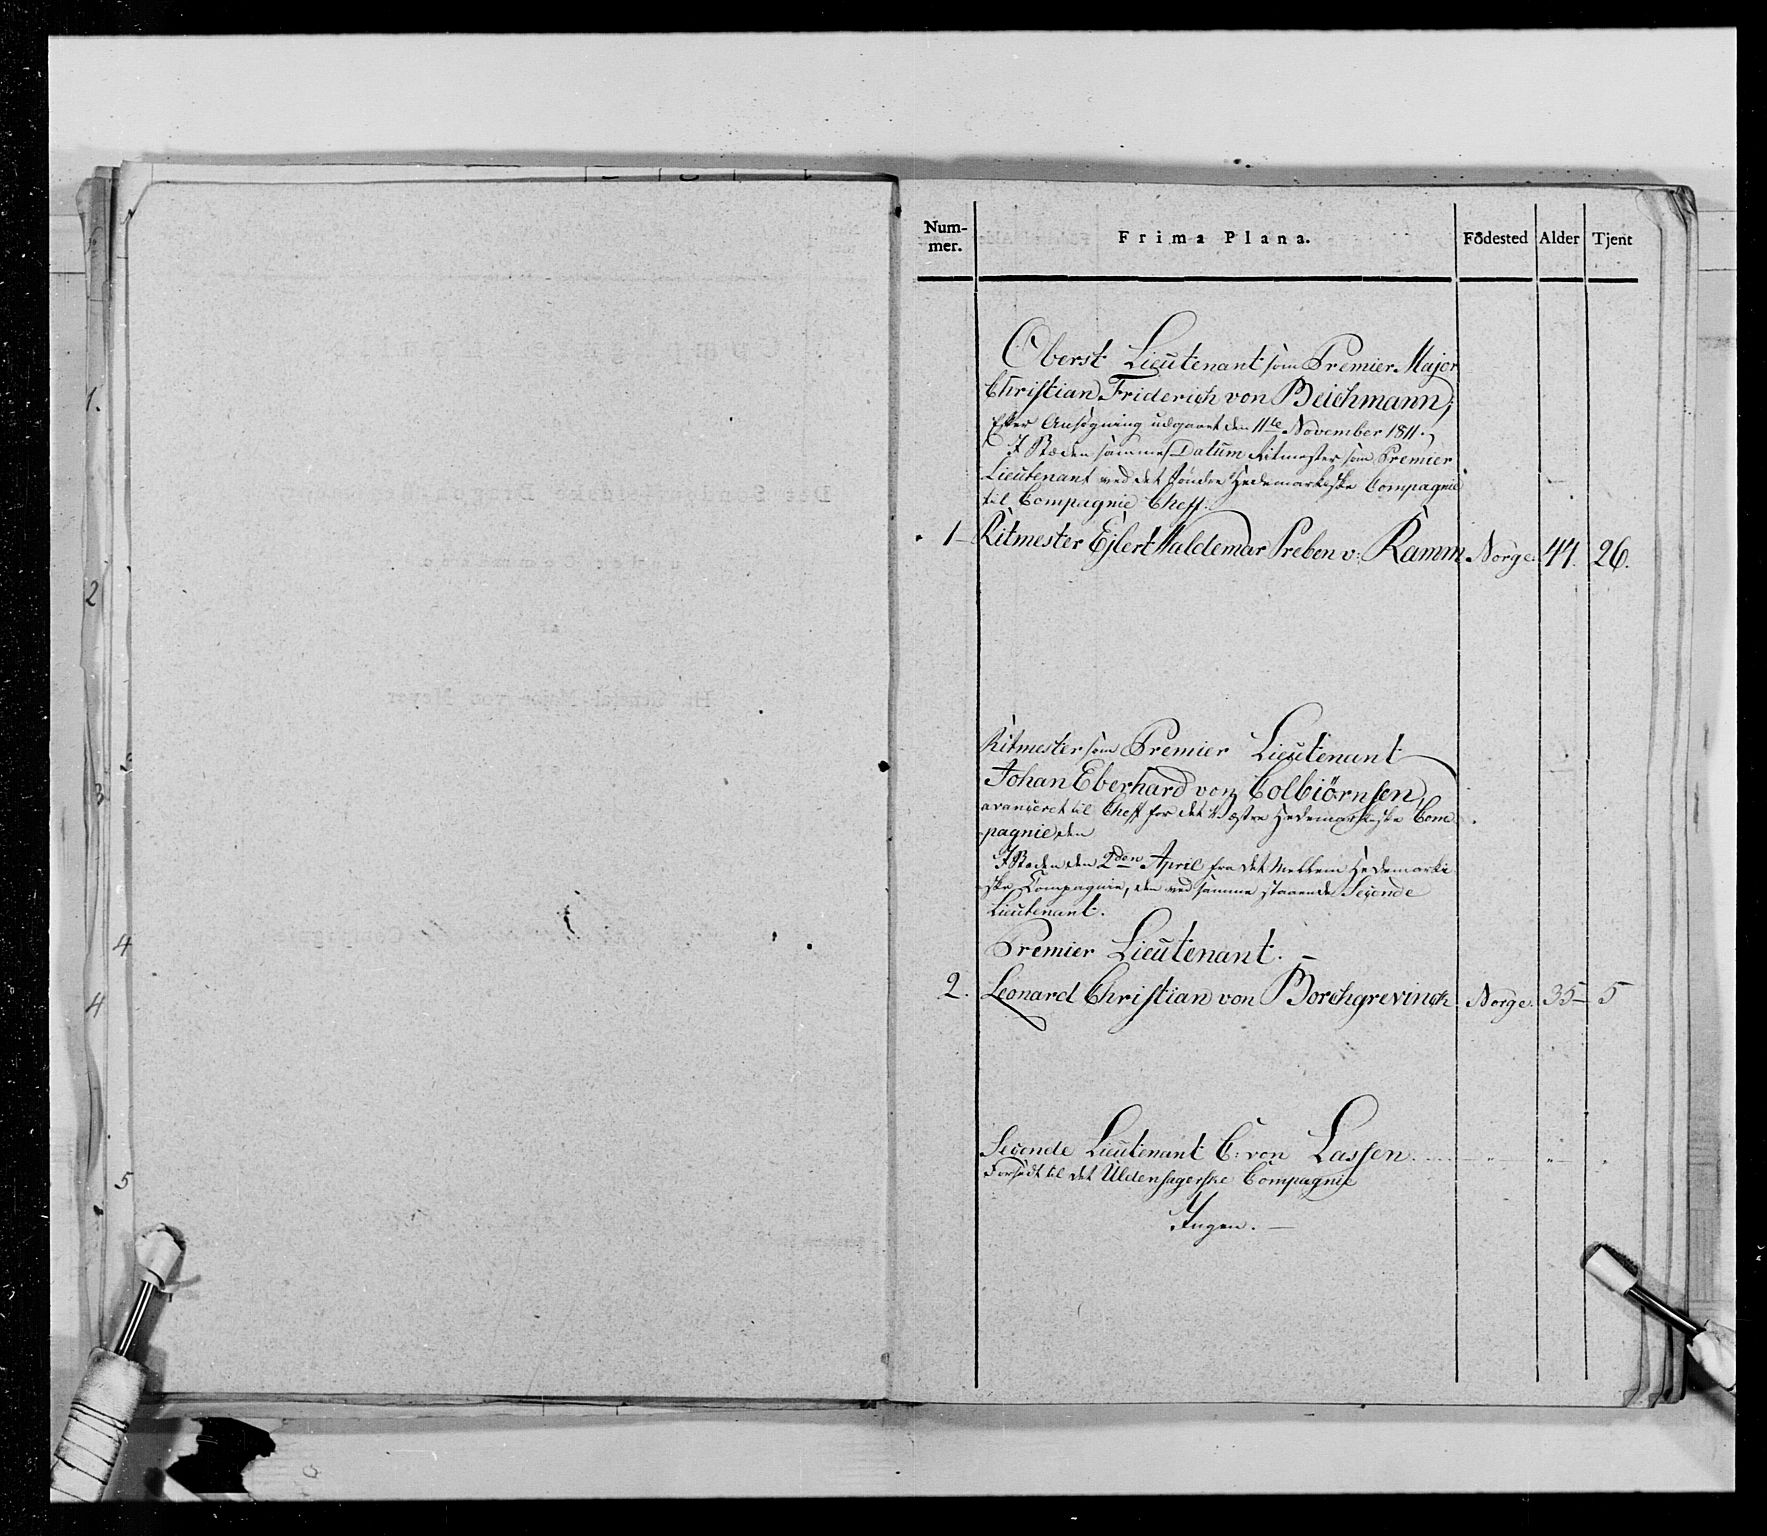 1.
2
3
3
4
4
5
Num-
mer.
Frima Plana.
Födested
Alder
Tjent
Oberst Lieutenant som Premier Major
Christian Friderich von Beichmann,
Efter Ansögning udgaaet den 11te November 1811.
I Stæden samme Datum Ritmester som Premier
Lieutenant ved det söndre Hedemarkiske Compagnie
til Compagnie Cheff.
1 Ritmester Ejlert Waldemar Preben v: Ramm Norge. 44. 26.
Ritmester som Premier Lieutenant
Johan Eberhard von Colbiörnsen,
avanceret til Cheff for det Væstre Hedemarkiske Com
pagnie, den
I Steden den 2den April fra det Mellem Hedemarki
ske Compagnie, den ved samme staaende Seconde
Lieutenant.
Premier Lieutenant. –
2. Leonard Christian von Borchgrevinch. Norge. 35– 5
Seconde Lieutenant C: von Lassen. „ „ „
Forsadt til det Ullensagerske Compagnie
Ingen. –